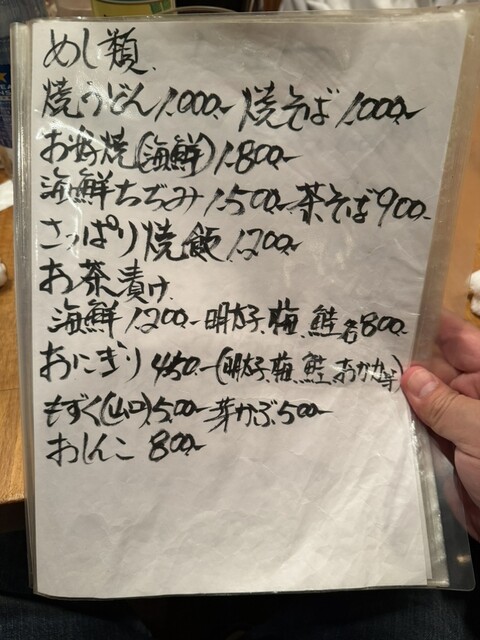 めし類
焼うどん 1.000.- 焼そば 1.000.-
お好焼(海鮮) 1.800.-
海鮮ちぢみ 1.500.- 茶そば 900.-
さっぱり焼飯 1.200.-
お茶漬け
海鮮 1.200.- 明太子、梅、鮭 各800.-
おにぎり 450.-(明太子、梅、鮭、おかか等)
もずく(山口) 500.- 芽かぶ 500.-
おしんこ 800.-